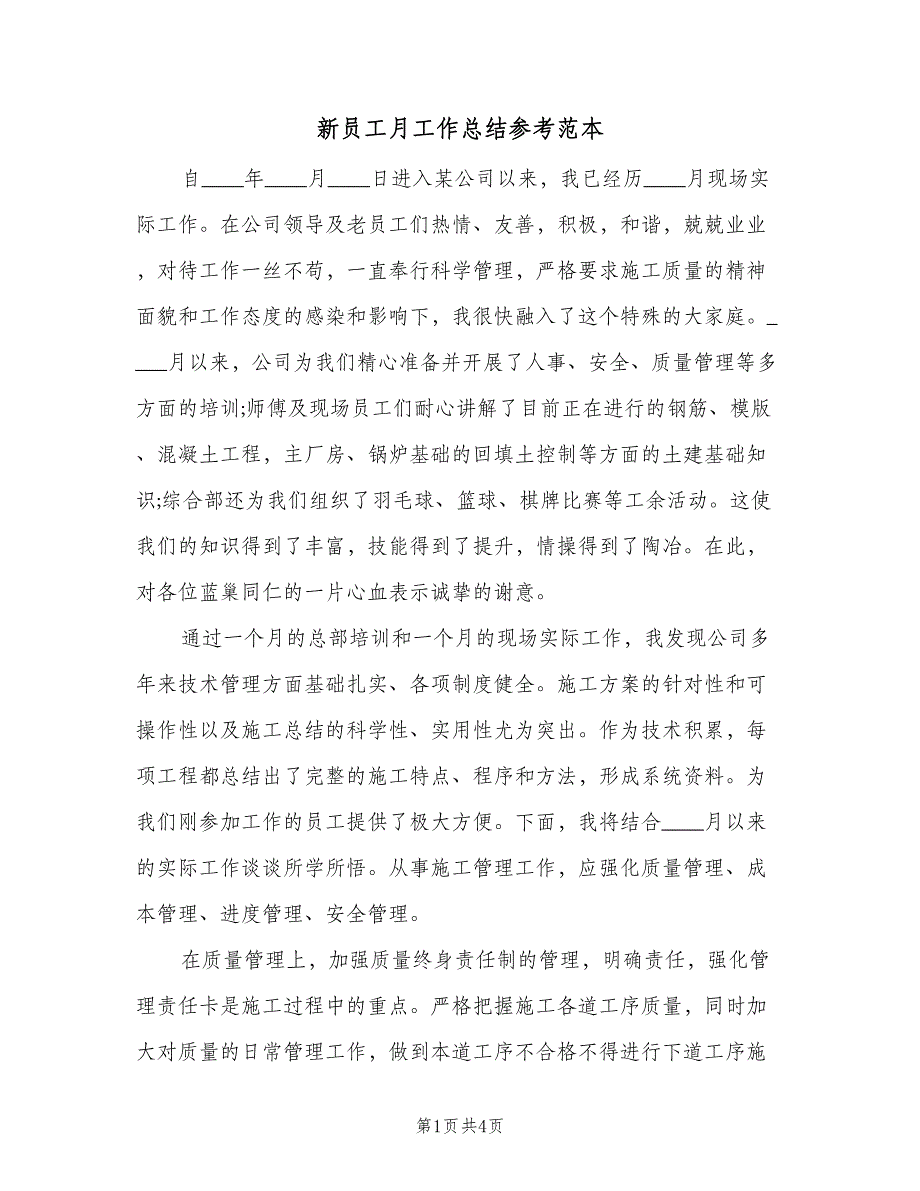 新员工月工作总结参考范本
自____年____月____日进入某公司以来，我已经历____月现场实
际工作。在公司领导及老员工们热情、友善，积极，和谐，兢兢业业
，对待工作一丝不苟，一直奉行科学管理，严格要求施工质量的精神
面貌和工作态度的感染和影响下，我很快融入了这个特殊的大家庭。_
___月以来，公司为我们精心准备并开展了人事、安全、质量管理等多
方面的培训;师傅及现场员工们耐心讲解了目前正在进行的钢筋、模版
、混凝土工程，主厂房、锅炉基础的回填土控制等方面的土建基础知
识;综合部还为我们组织了羽毛球、篮球、棋牌比赛等工余活动。这使
我们的知识得到了丰富，技能得到了提升，情操得到了陶冶。在此，
对各位蓝巢同仁的一片心血表示诚挚的谢意。
通过一个月的总部培训和一个月的现场实际工作，我发现公司多
年来技术管理方面基础扎实、各项制度健全。施工方案的针对性和可
操作性以及施工总结的科学性、实用性尤为突出。作为技术积累，每
项工程都总结出了完整的施工特点、程序和方法，形成系统资料。为
我们刚参加工作的员工提供了极大方便。下面，我将结合____月以来
的实际工作谈谈所学所悟。从事施工管理工作，应强化质量管理、成
本管理、进度管理、安全管理。
在质量管理上，加强质量终身责任制的管理，明确责任，强化管
理责任卡是施工过程中的重点。严格把握施工各道工序质量，同时加
大对质量的日常管理工作，做到本道工序不合格不得进行下道工序施
第1页共4页